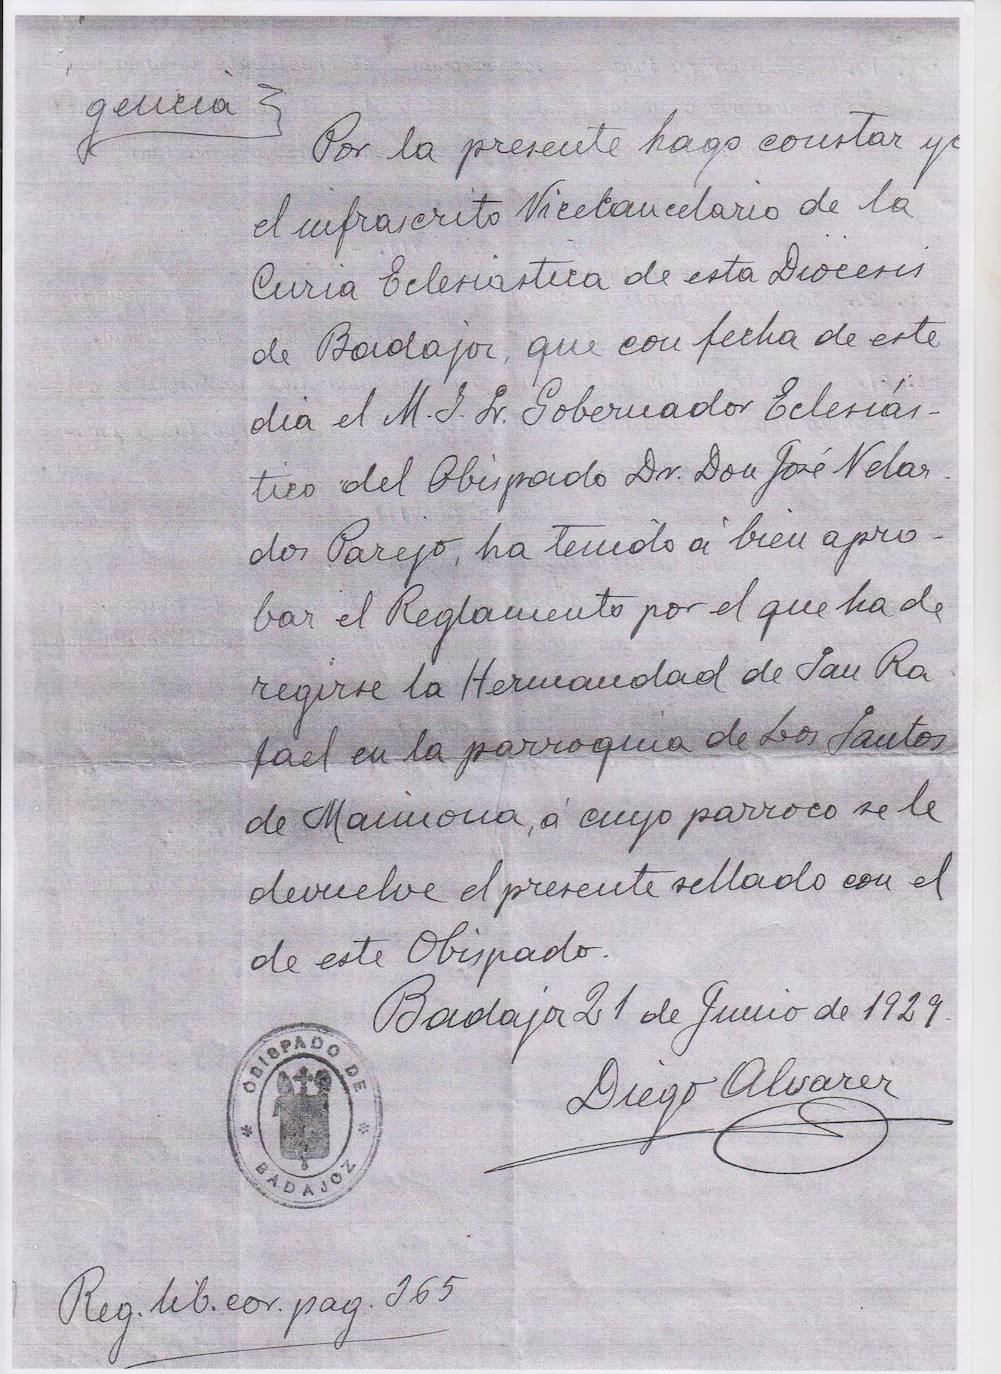 gencia
Por la presente hago constar yo
el infrascrito Vicecancelario de la
Curia Eclesiástica de esta Diócesis
de Badajoz, que con fecha de este
día el M. I. Sr. Gobernador Eclesiás-
tico del Obispado Dr. Don José Velar-
dos Parejo, ha tenido á bien apro-
bar el Reglamento por el que ha de
regirse la Hermandad de San Ra-
fael en la parroquia de Los Santos
de Maimona, á cuyo parroco se le
devuelve el presente sellado con el
de este Obispado.
Badajoz 21 de Junio de 1929.
Diego Alvarez
OBISPADO DE
BADAJOZ
Reg. lib. cor. pag. 365